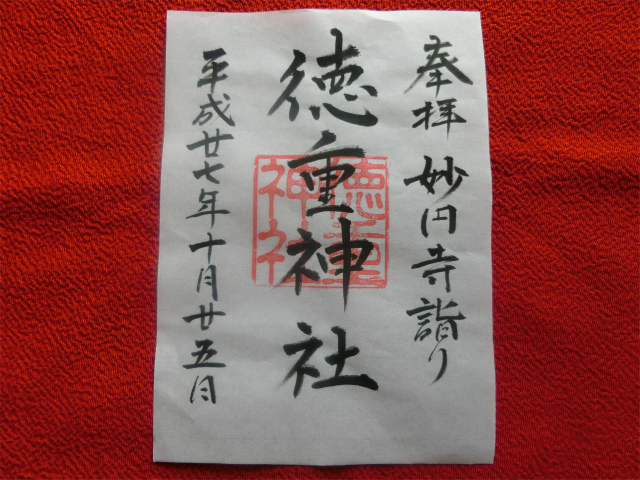 奉拝 妙円寺詣り
徳重神社
徳重
神社
平成廿七年十月廿五日